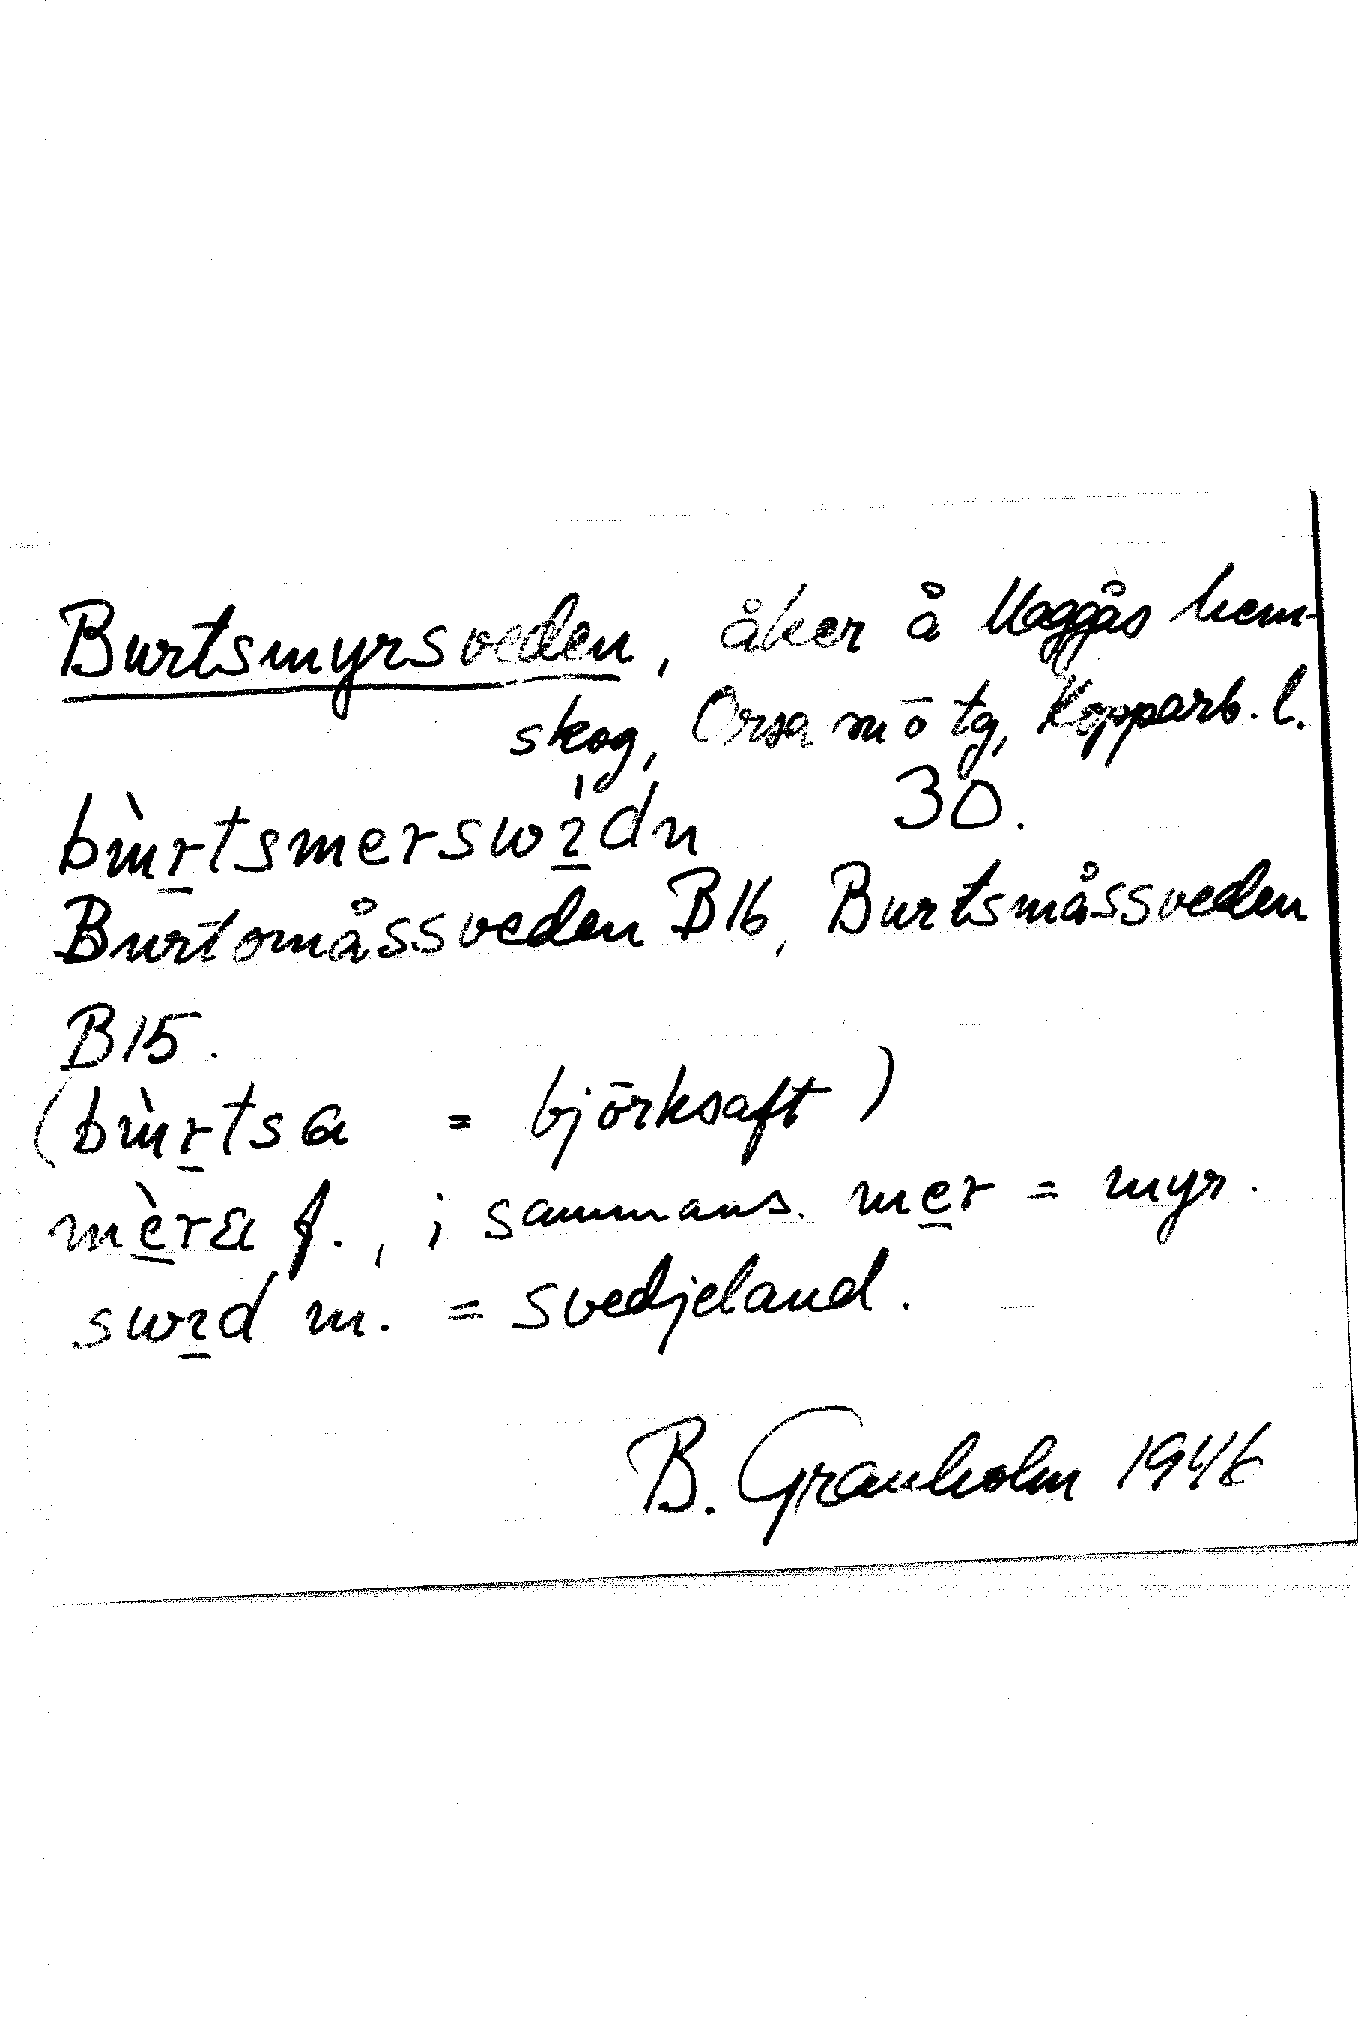 Burtsmyrsveden, åker å Maggås hem-
skog, Orsa sn o tg, Kopparb. l.
bùr̲tsmerswı̲̀dn 30.
Burtomåssveden B16, Burtsmåssveden
B15.
(bùr̲tsa = björksaft)
mè̲ra f., i sammans. me̲r = myr.
swı̲d m. = svedjeland.
B. Granholm 1946